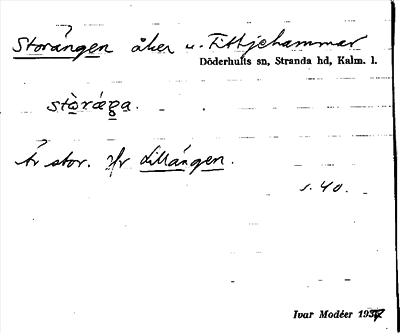 Storången åker u. Fittjehammar
Döderhults sn, Stranda hd, Kalm. l.
stòrága.
Är stor. Jfr Lillängen.
s. 40.
Ivar Modéer 1937